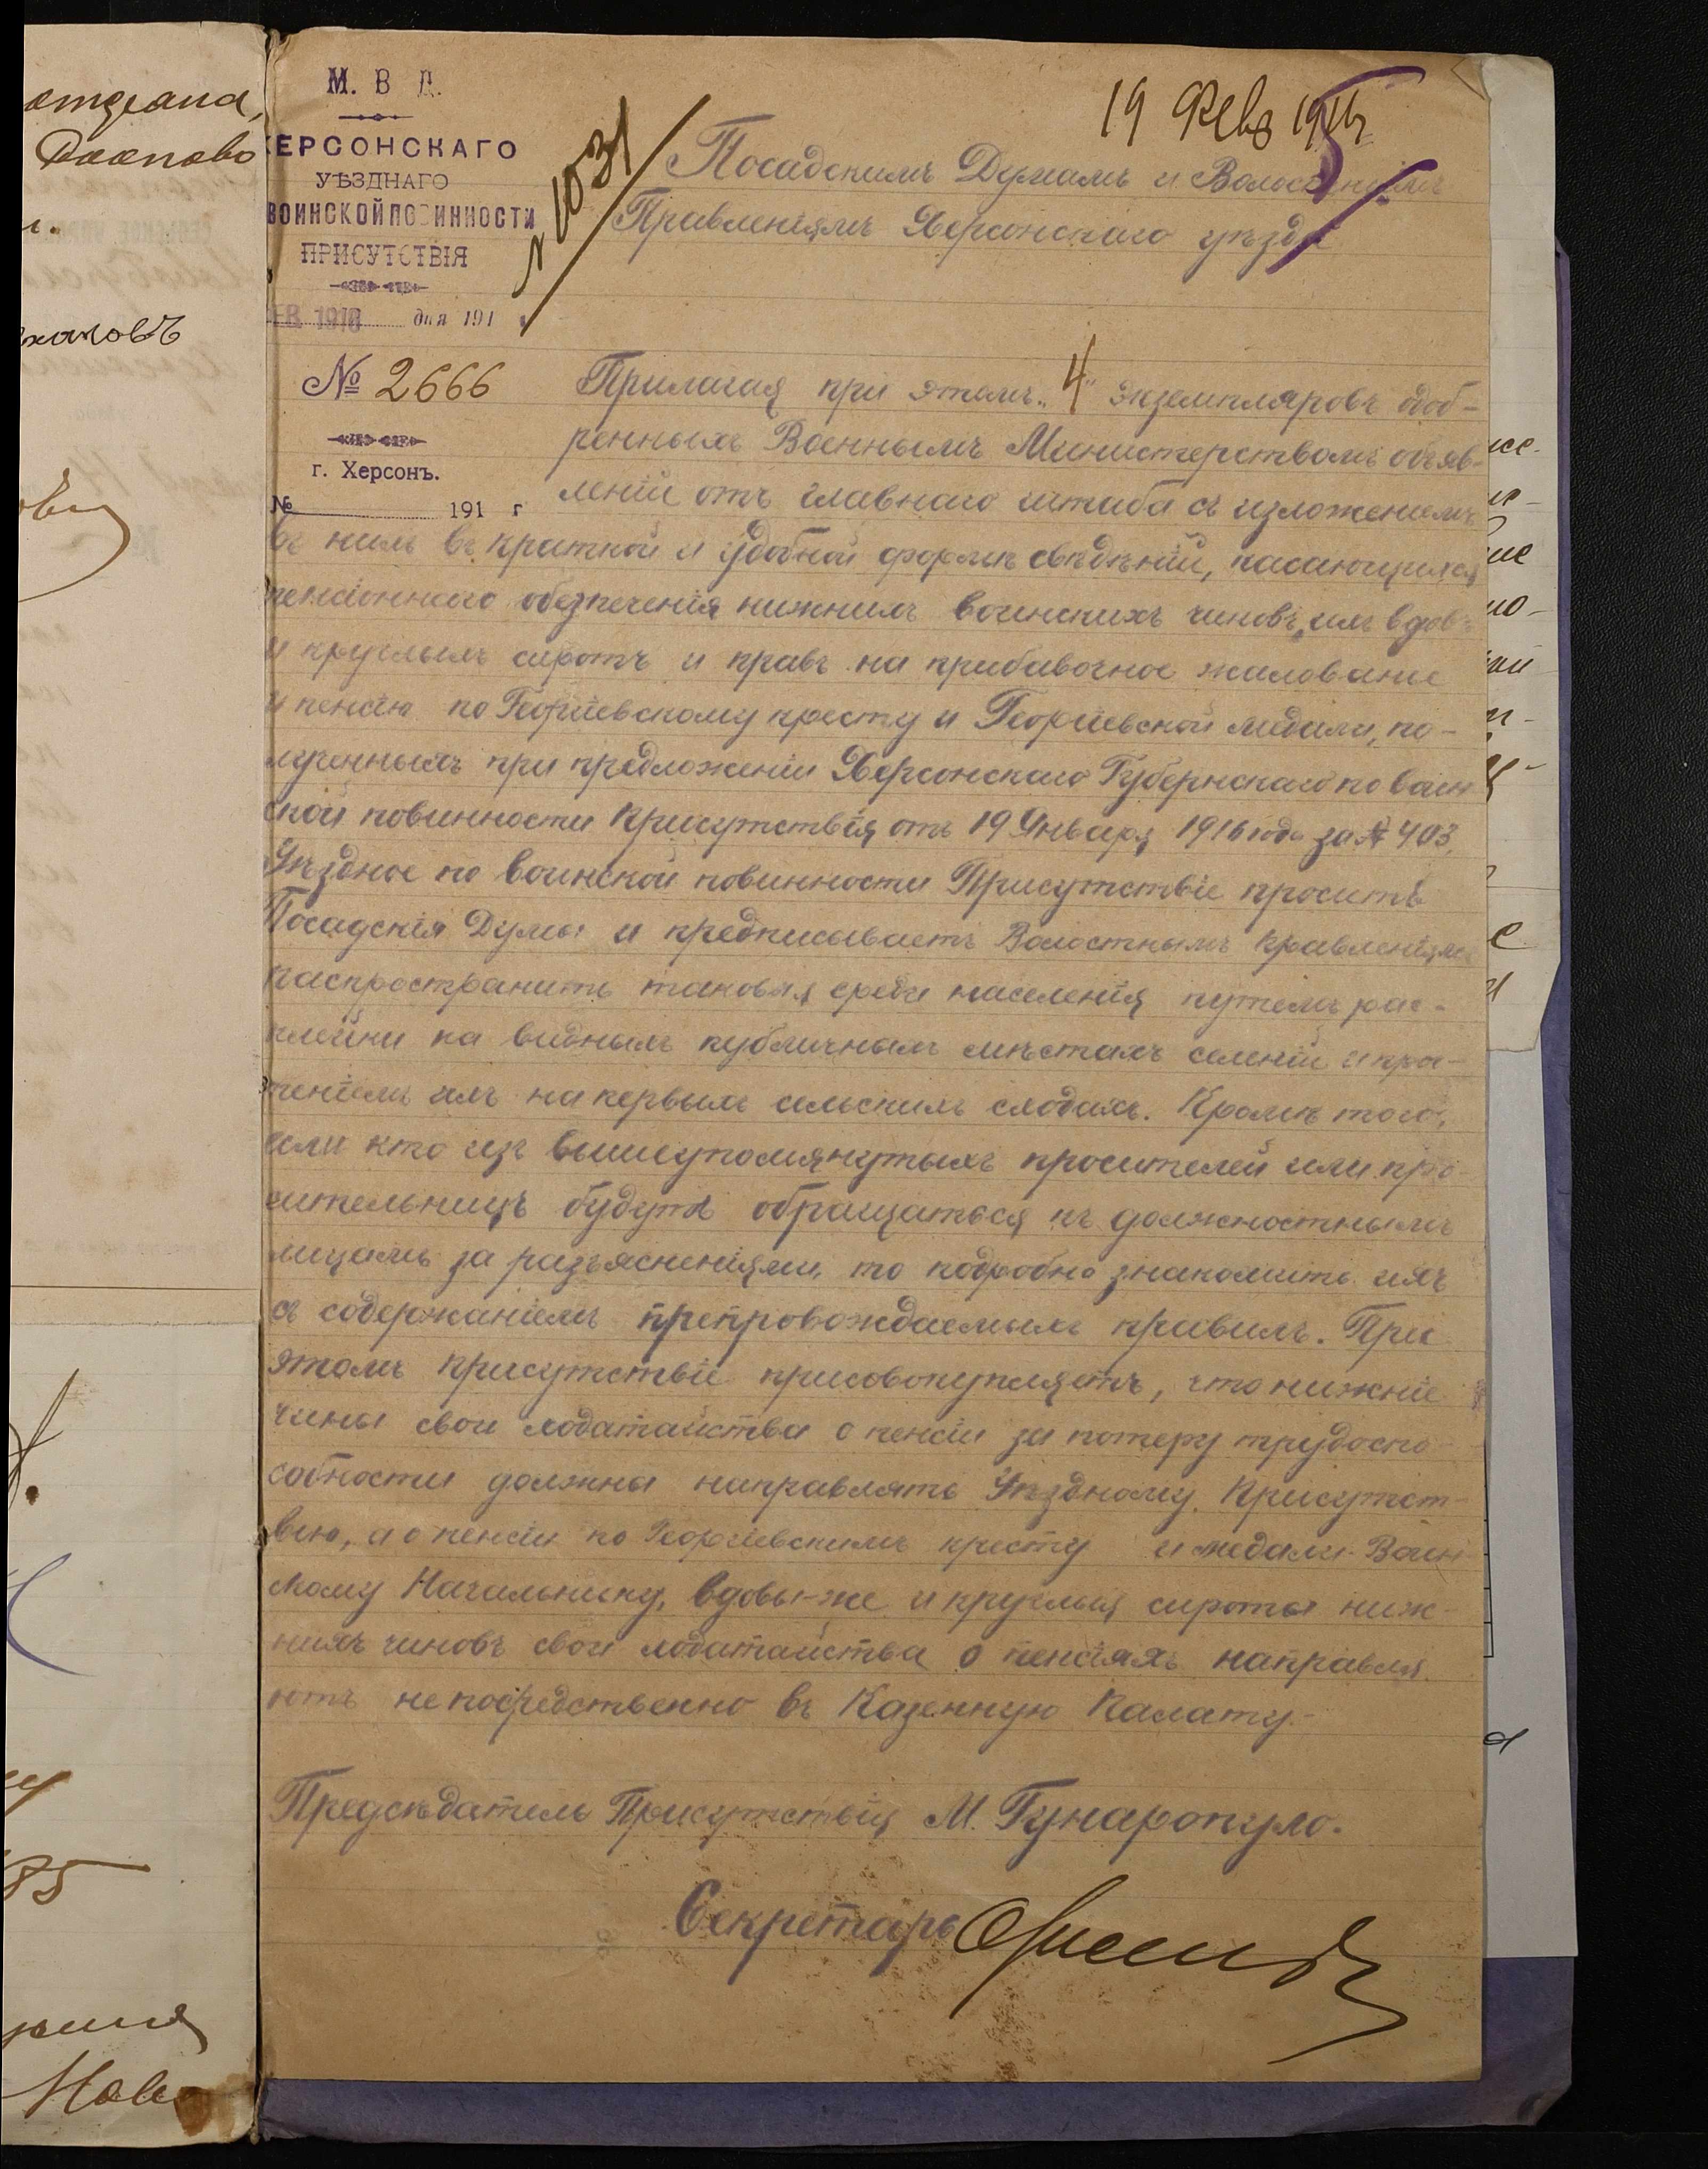 отдѣла,
М. В. Д.
ХЕРСОНСКАГО
УѢЗДНАГО
ВОИНСКОЙ ПОВИННОСТИ
ПРИСУТСТВІЯ
ФЕВ 1916 дня 191 г.
№ 2666
г. Херсонъ.
№ 191 г
№ 1031
19 Фев 1916
Посадскимъ Думамъ и Волостнымъ
Правленіямъ Херсонскаго уѣзда
Прилагая при этомъ „4" экземпляровъ одоб-
ренныхъ Военнымъ Министерствомъ объяв-
леній отъ главнаго штаба съ изложеніемъ
въ нихъ въ краткой и удобной формѣ свѣдѣній, касающихся
пенсіоннаго обезпеченія нижнихъ воинскихъ чиновъ, ихъ вдовъ
и круглыхъ сиротъ и правъ на прибавочное жалованіе
и пенсію по Георгіевскому кресту и Георгіевской медали, по-
лученныхъ при предложеніи Херсонскаго Губернскаго по воин
ской повинности Присутствія отъ 19 Января 1916 года за № 403,
Уѣздное по воинской повинности Присутствіе проситъ
Посадскія Думы и предписываетъ Волостнымъ Правленіямъ
распространить таковыя среди населенія путемъ рас-
клейки на видныхъ публичныхъ мѣстахъ селеній и про-
чтеніемъ ихъ на первыхъ сельскихъ сходахъ. Кромѣ того,
если кто изъ вышеупомянутыхъ просителей или про-
сительницъ будутъ обращаться къ должностнымъ
лицамъ за разъясненіями, то подробно знакомить ихъ
съ содержаніемъ препровождаемыхъ правилъ. При
этомъ присутствіе присовокупляетъ, что нижніе
чины свои ходатайства о пенсіи за потерю трудоспо-
собности должны направлять Уѣздному Присутст-
вію, а о пенсіи по Георгіевскимъ кресту и медали - Воин-
скому Начальнику, вдовы-же и круглыя сироты ниж-
нихъ чиновъ свои ходатайства о пенсіяхъ направля-
ютъ непосредственно въ Казенную Палату.-
Предсѣдатель Присутствія М. Гунаропуло.
Секретарь